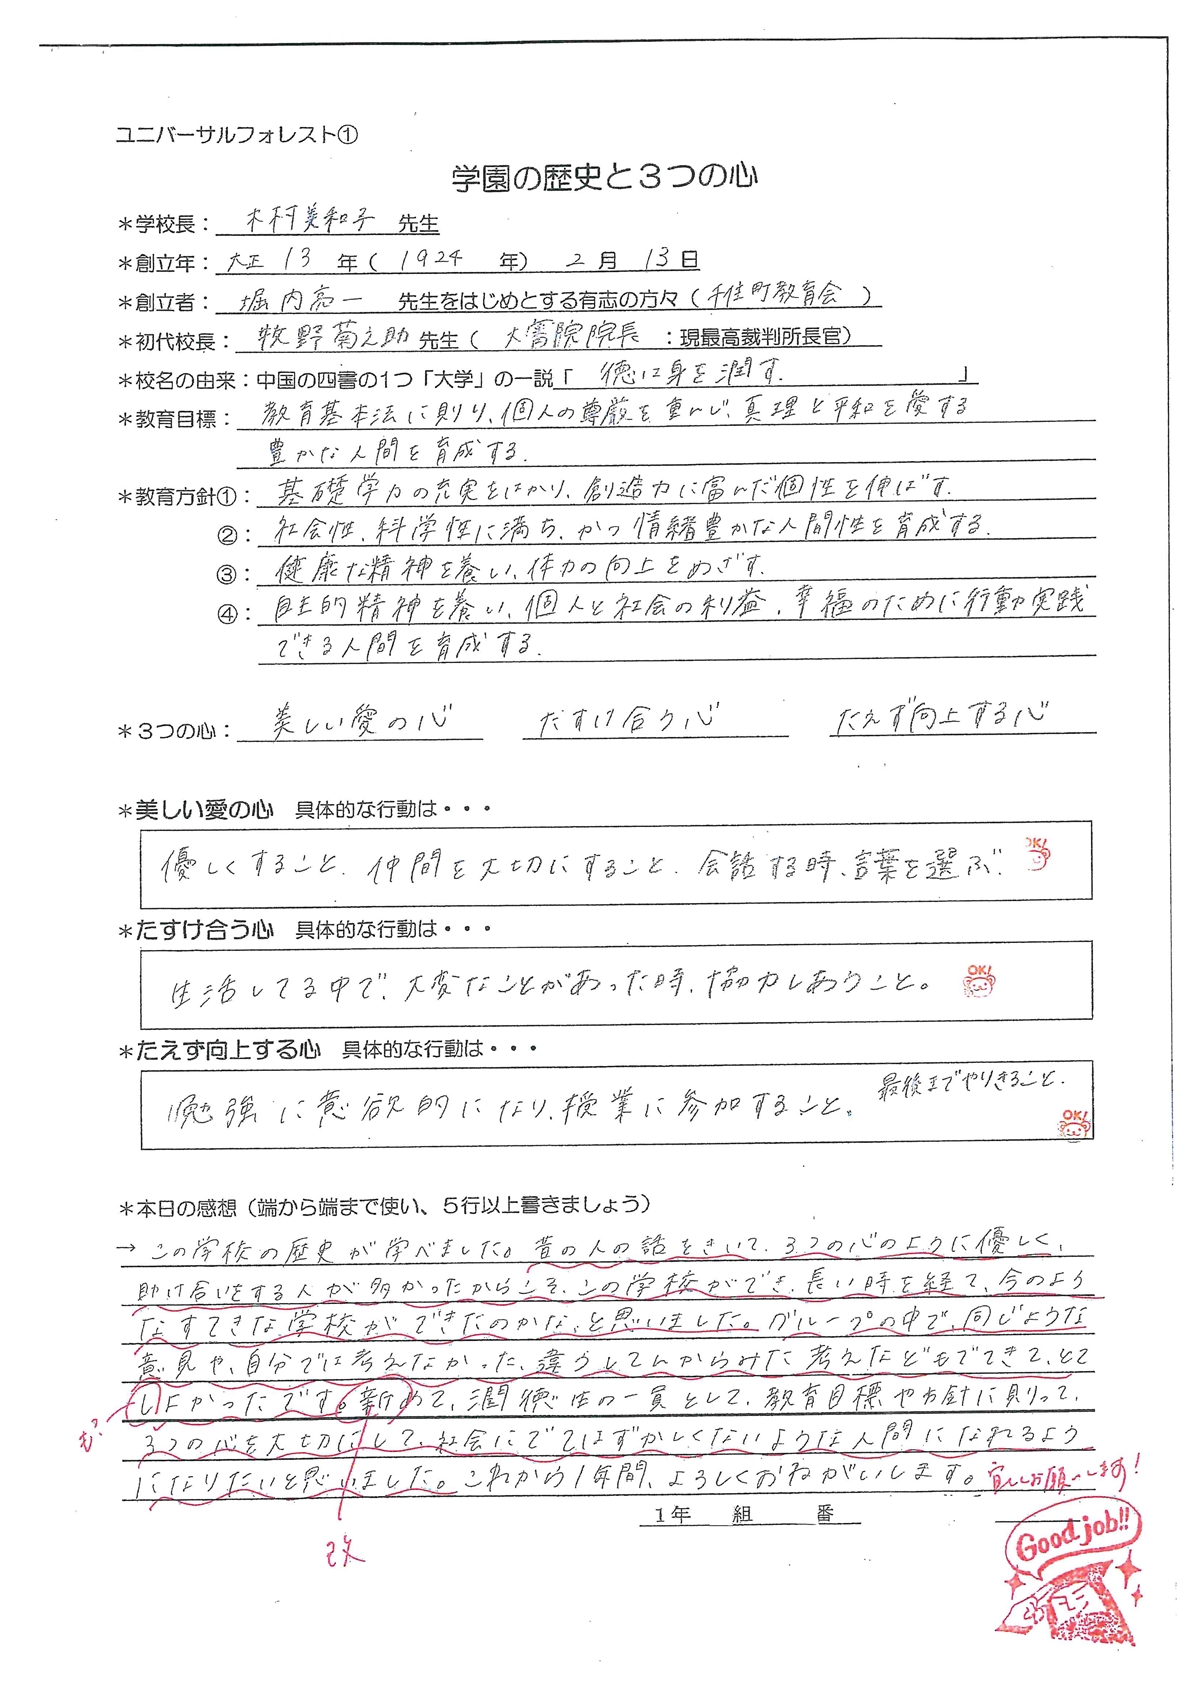 ユニバーサルフォレスト①
学園の歴史と３つの心
＊学校長： 木村美和子 先生
＊創立年：大正 13 年（ 1924 年） 2 月 13 日
＊創立者： 堀内亮一 先生をはじめとする有志の方々（千住町教育会）
＊初代校長： 牧野菊之助 先生（ 大審院院長 ：現最高裁判所長官）
＊校名の由来：中国の四書の１つ「大学」の一説「 徳は身を潤す. 」
＊教育目標： 教育基本法に則り、個人の尊厳を重んじ、真理と平和を愛する
豊かな人間を育成する.
＊教育方針①： 基礎学力の充実をはかり、創造力に富んだ個性を伸ばす.
②： 社会性、科学性に満ち、かつ情緒豊かな人間性を育成する.
③： 健康な精神を養い、体力の向上をめざす.
④： 自主的精神を養い、個人と社会の利益、幸福のために行動実践
できる人間を育成する.
＊３つの心： 美しい愛の心 たすけ合う心 たえず向上する心
＊美しい愛の心 具体的な行動は・・・
優しくすること、仲間を大切にすること、会話する時、言葉を選ぶ. OK!
＊たすけ合う心 具体的な行動は・・・
生活してる中で、大変なことがあった時、協力しあうこと。 OK!
＊たえず向上する心 具体的な行動は・・・
勉強に意欲的になり、授業に参加すること。 最後までやりきること. OK!
＊本日の感想（端から端まで使い、５行以上書きましょう）
→ この学校の歴史が学べました。昔の人の話をきいて、3つの心のように優しく、
助け合いをする人が多かったからこそ、この学校ができ、長い時を経て、今のよう
なすてきな学校ができたのかな、と思いました。グループの中で、同じような
意見や、自分では考えなかった、違うしてんからみた考えなどもでてきて、とて
しよかったです。新めて、潤徳生の一員として、教育目標や方針に則って、
も
3つの心を大切にして、社会にでてはずかしくないような人間になれるよう
になりたいと思いました。これから1年間、よろしくおねがいします。宜しくお願いします！
改
１年 組 番
Good job!!